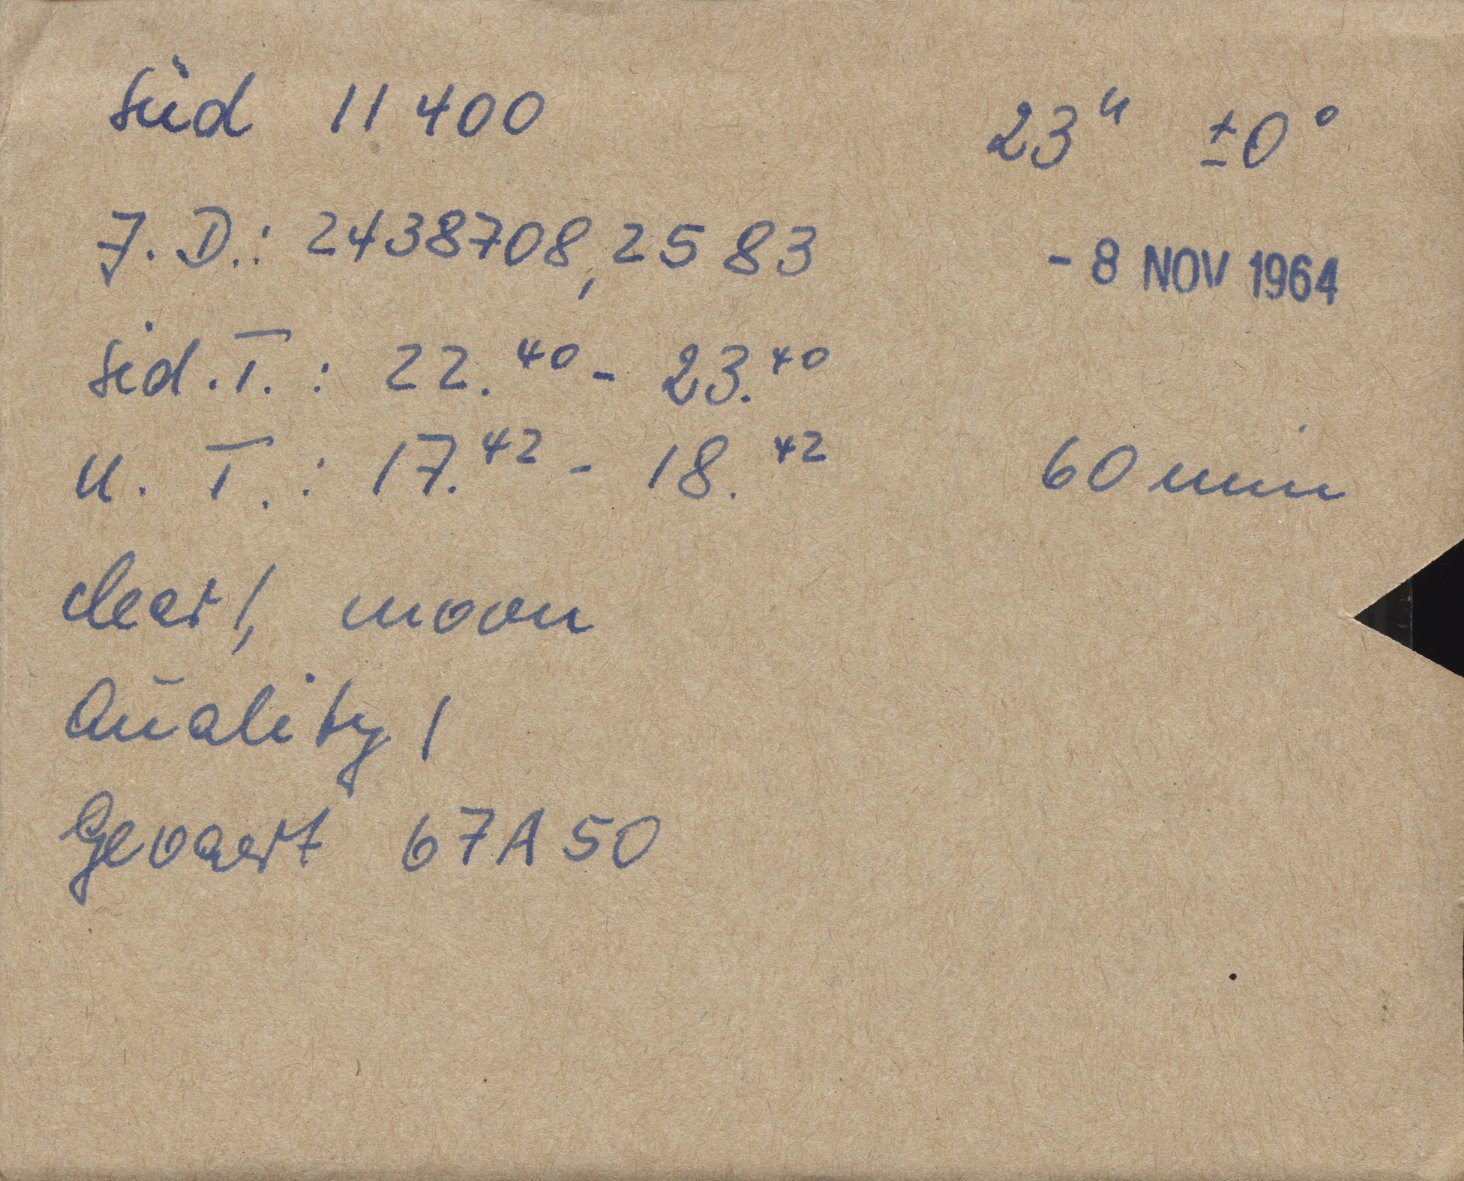 Süd 11400 23ʰ ±0°
J. D.: 2438708,2583 - 8 NOV 1964
Sid. T. : 22.⁴⁰ - 23.⁴⁰
U. T. : 17.⁴² - 18.⁴² 60 min
clear!, moon
Quality 1
Gevaert 67A50